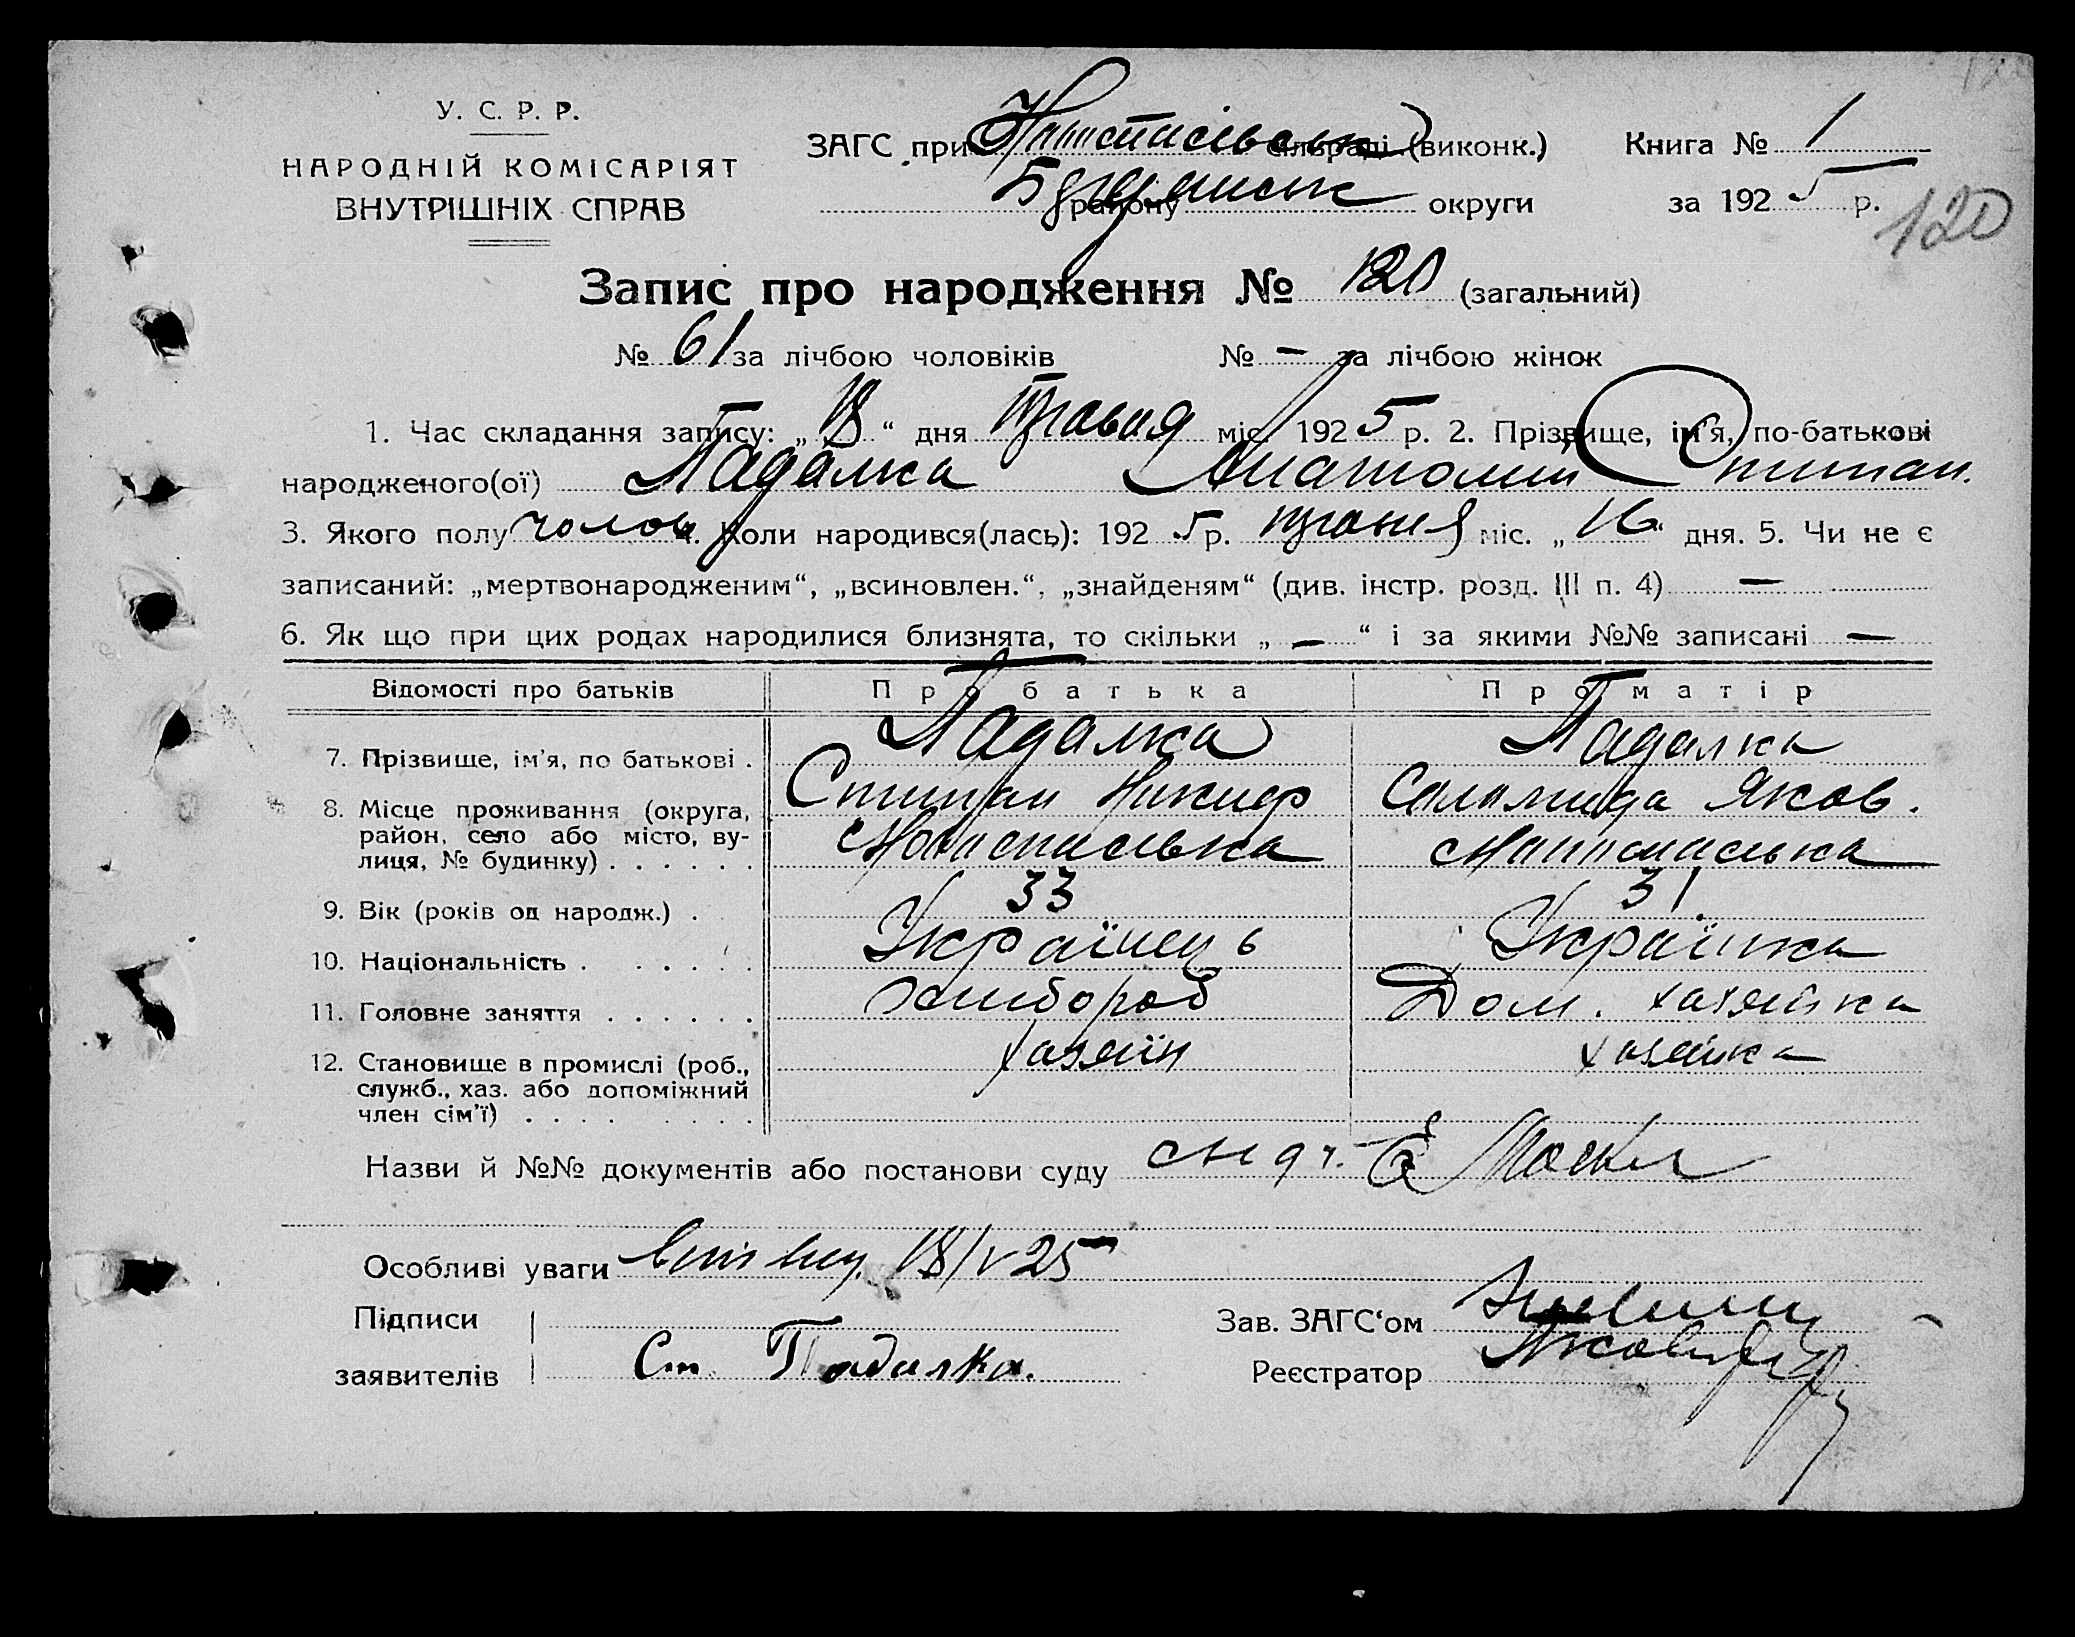 У. С. Р. Р.
НАРОДНІЙ КОМІСАРІЯТ
ВНУТРІШНІХ СПРАВ
ЗАГС при сільраді (виконк.)
району округи
Книга № 1
за 1925 р.
120
Запис про народження № 120 (загальний)
№ 61 за лічбою чоловіків № — за лічбою жінок
1. Час складання запису: „18“ дня травня міс. 1925 р. 2. Прізвище, ім'я, по-батькові
народженого(ої) Падалка Анатолий Степан.
3. Якого полу чолов. 4. Коли народився(лась): 1925 р. травня міс. „16“ дня. 5. Чи не є
записаний: „мертвонародженим“, „всиновлен.“, „знайденям“ (див. інстр. розд. III п. 4) —
6. Як що при цих родах народилися близнята, то скільки „ — “ і за якими №№ записані —
Відомості про батьків Про батька Про матір
7. Прізвище, ім'я, по батькові . Падалка Падалка
8. Місце проживання (округа, район, село або місто, вулиця, № будинку) . . . . . . Степан Никиф Саламида Яков.
9. Вік (років од народж.) . 33 31
10. Національність . . . . . . Українець Українка
11. Головне заняття . . . . . . хлибороб Дом. хазяйка
12. Становище в промислі (роб., служб., хаз. або допоміжний член сім'ї) . . . . . . . . хазяїн хазяйка
Назви й №№ документів або постанови суду
Особливі уваги 18/V 25
Підписи
заявителів Ст. Падалка.
Зав. ЗАГС‘ом
Реєстратор